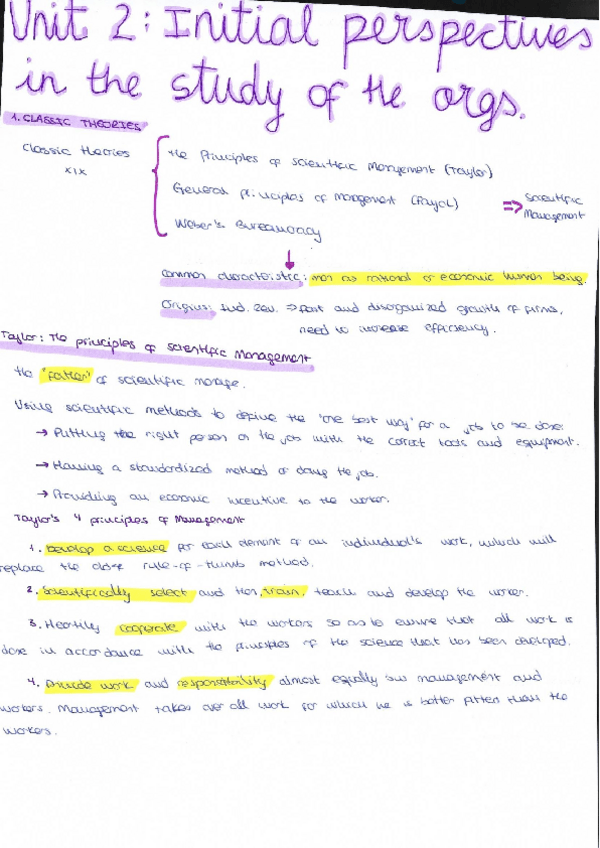 Unit 2: Initial perspectives
in the study of the orgs.
1. CLASSIC THEORIES
Classic theories
XIX
The Principles of scientific Management (Taylor)
General principles of management (Fayol)
Weber's Bureaucracy
=> Scientific
Management
Common characteristic: man as rational or economic human being.
Origins: Ind. Rev. => fast and disorganized growth of firms,
need to increase efficiency.
Taylor: The principles of scientific Management
the "father" of scientific manage.
Using scientific methods to define the "one best way" for a job to be done:
→ Putting the right person on the job with the correct tools and equipment.
→ Having a standardized method of doing the job.
→ Providing an economic incentive to the worker.
Taylor's 4 principles of Management
1. Develop a science for each element of an individual's work, which will
replace the older rule-of-thumb method.
2. Scientifically select and then, train, teach and develop the worker.
3. Heartily cooperate with the workers so as to ensure that all work is
done in accordance with the principles of the science that has been developed.
4. Divide work and responsibility almost equally bw management and
workers. Management takes over all work for which he is better fitten than the
workers.